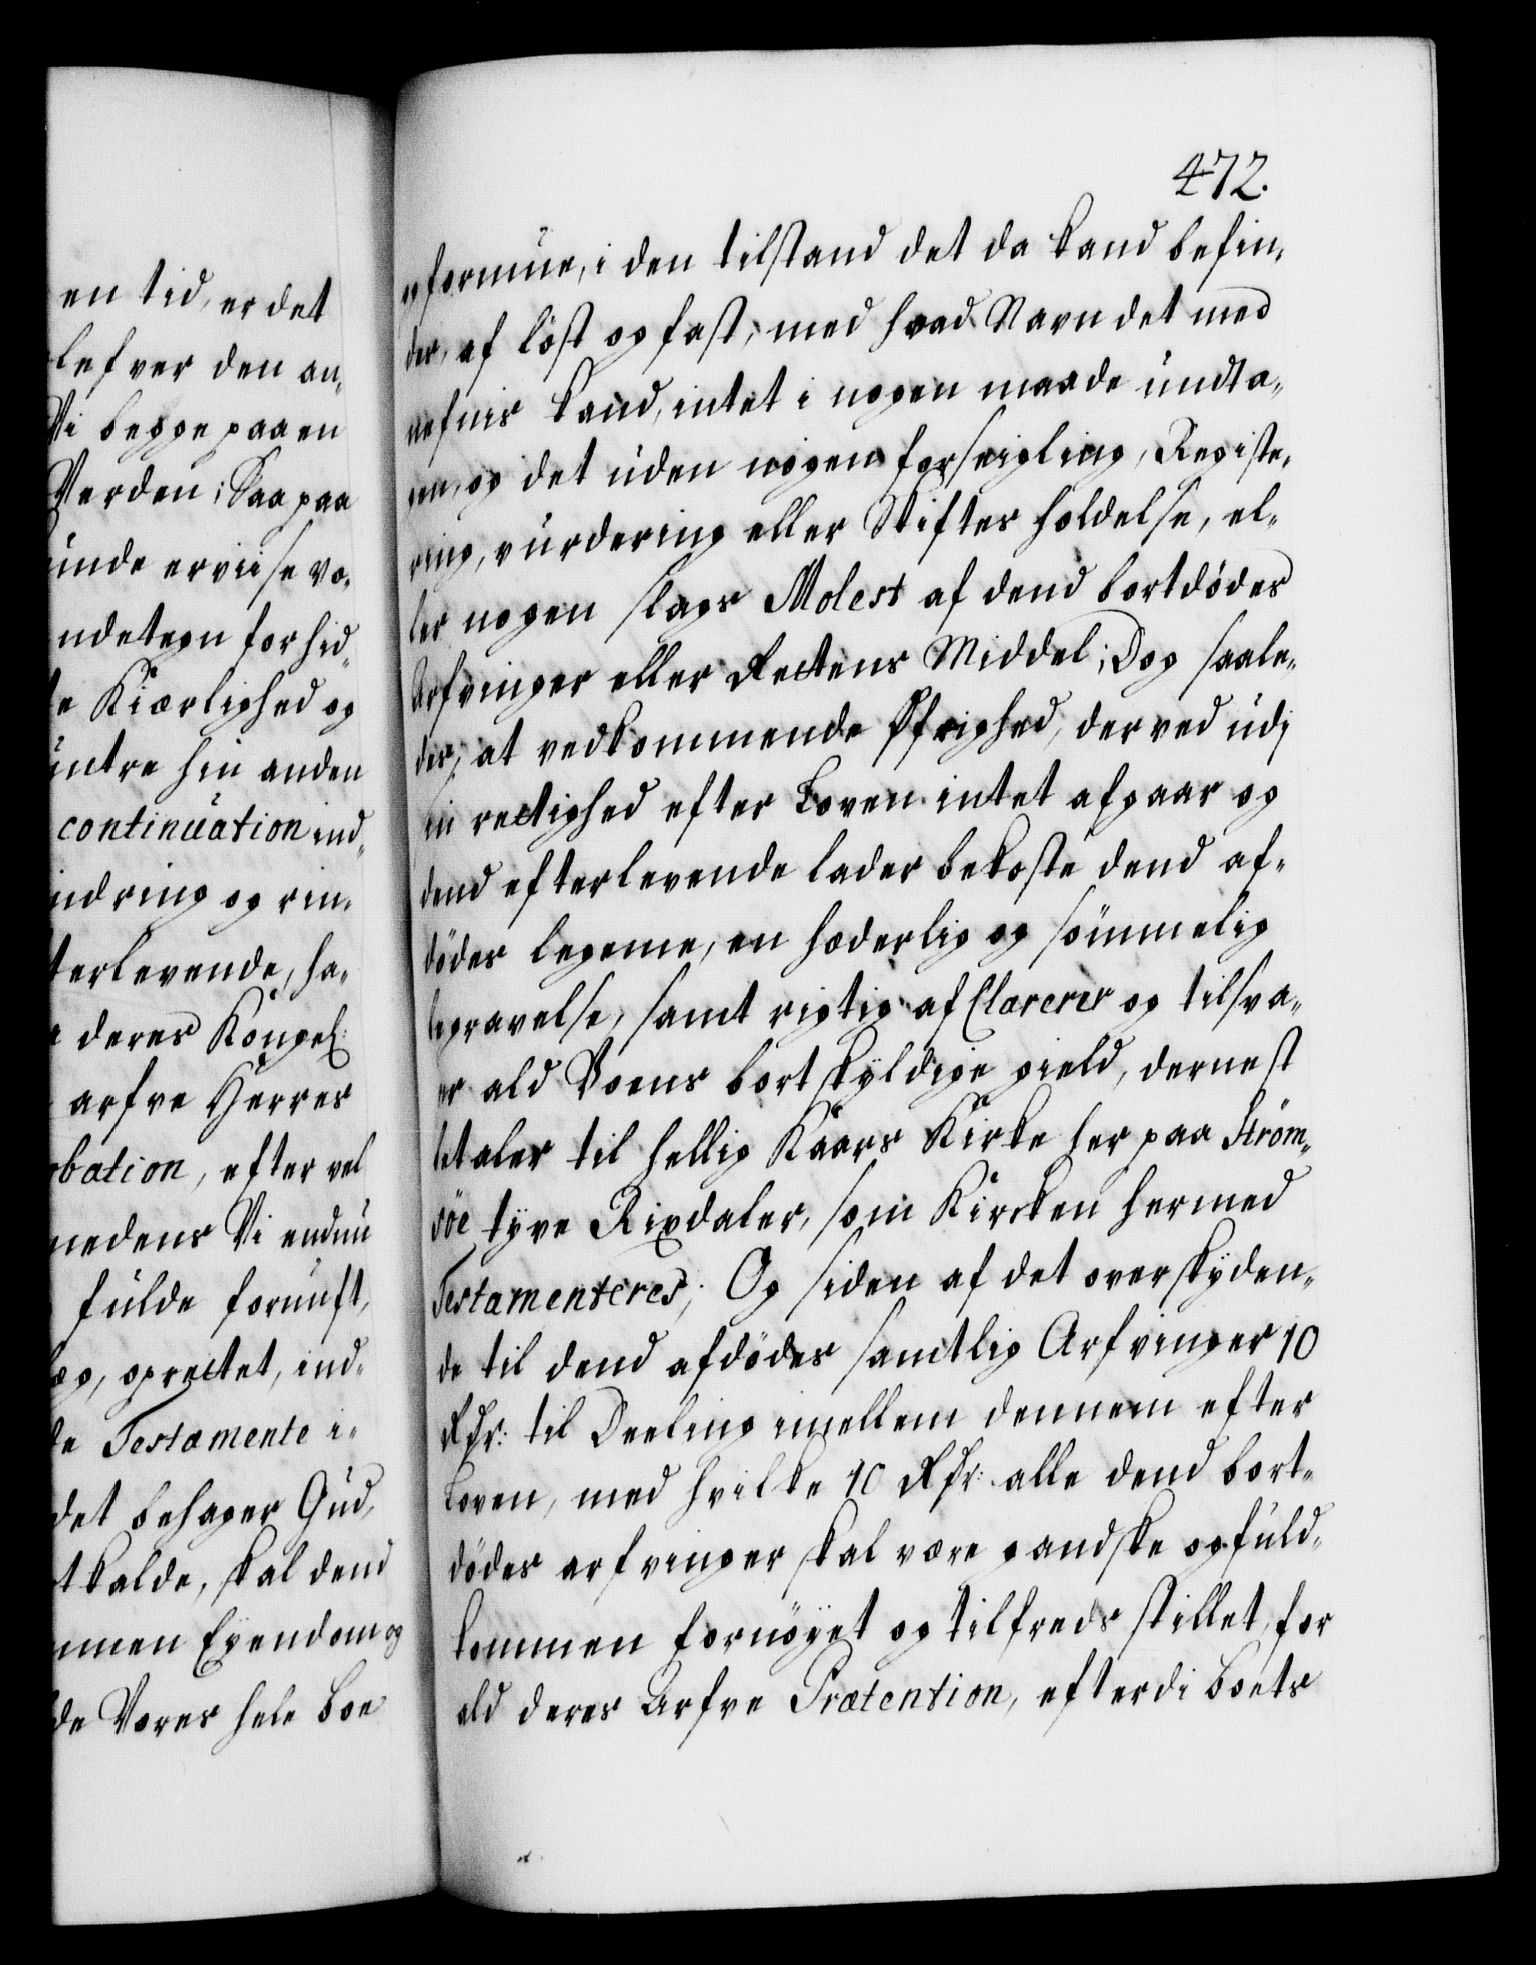 en tid, er det
lefver den an-
Vi begge paa en
Verden; Saa paa
unde erviise vo-
ndetegn for hid-
e Kiærlighed og
untre hin anden
continuation ind-
indring og rin-
terlevende, ha-
deres Kongel:
arfve Herres
bation, efter vel
medens Vi endnu
fulde fornuft,
æg, oprectet, ind-
de Testamente i-
det behager Gud,
tkalde, skal dend
men Eyendom og
de Vores hele boe
472.
formue, i den tilstand det da kand befin-
des, af löst og fast, med hvad Navn det med
nefnis kand, intet i nogen maade undta-
gen, og det uden nogen forseigling, Registe-
ring, vurdering eller Skiftes holdelse, el-
ler nogen slags Molest af dend bortdödes
Arfvinger eller Rectens Middel; Dog saale-
des, at vedkommende Öfrighed, derved udj
sin rectighed efter Loven intet afgaar og
dend efterlevende lader bekoste dend af-
dödes legeme, en hæderlig og sömmelig
begravelse, samt rigtig af Clarerer og tilsva-
rer ald Boens bortskyldige gield, dernest
betaler til hellig Kaars Kirke her paa Ström-
söe tyve Rixdaler, som Kircken hermed
Testamenteres; Og siden af det overskyden-
de til dend afdödes samtlig Arfvinger 10
Rdr: til Deeling imellem dennem efter
Loven, med hvilke 10 Rdr: alle dend bort-
dödes arfvinger skal være gandske og fuld-
kommen fornöyet og tilfreds stillet, for
ald deres Arfve Prætention, efterdi boets